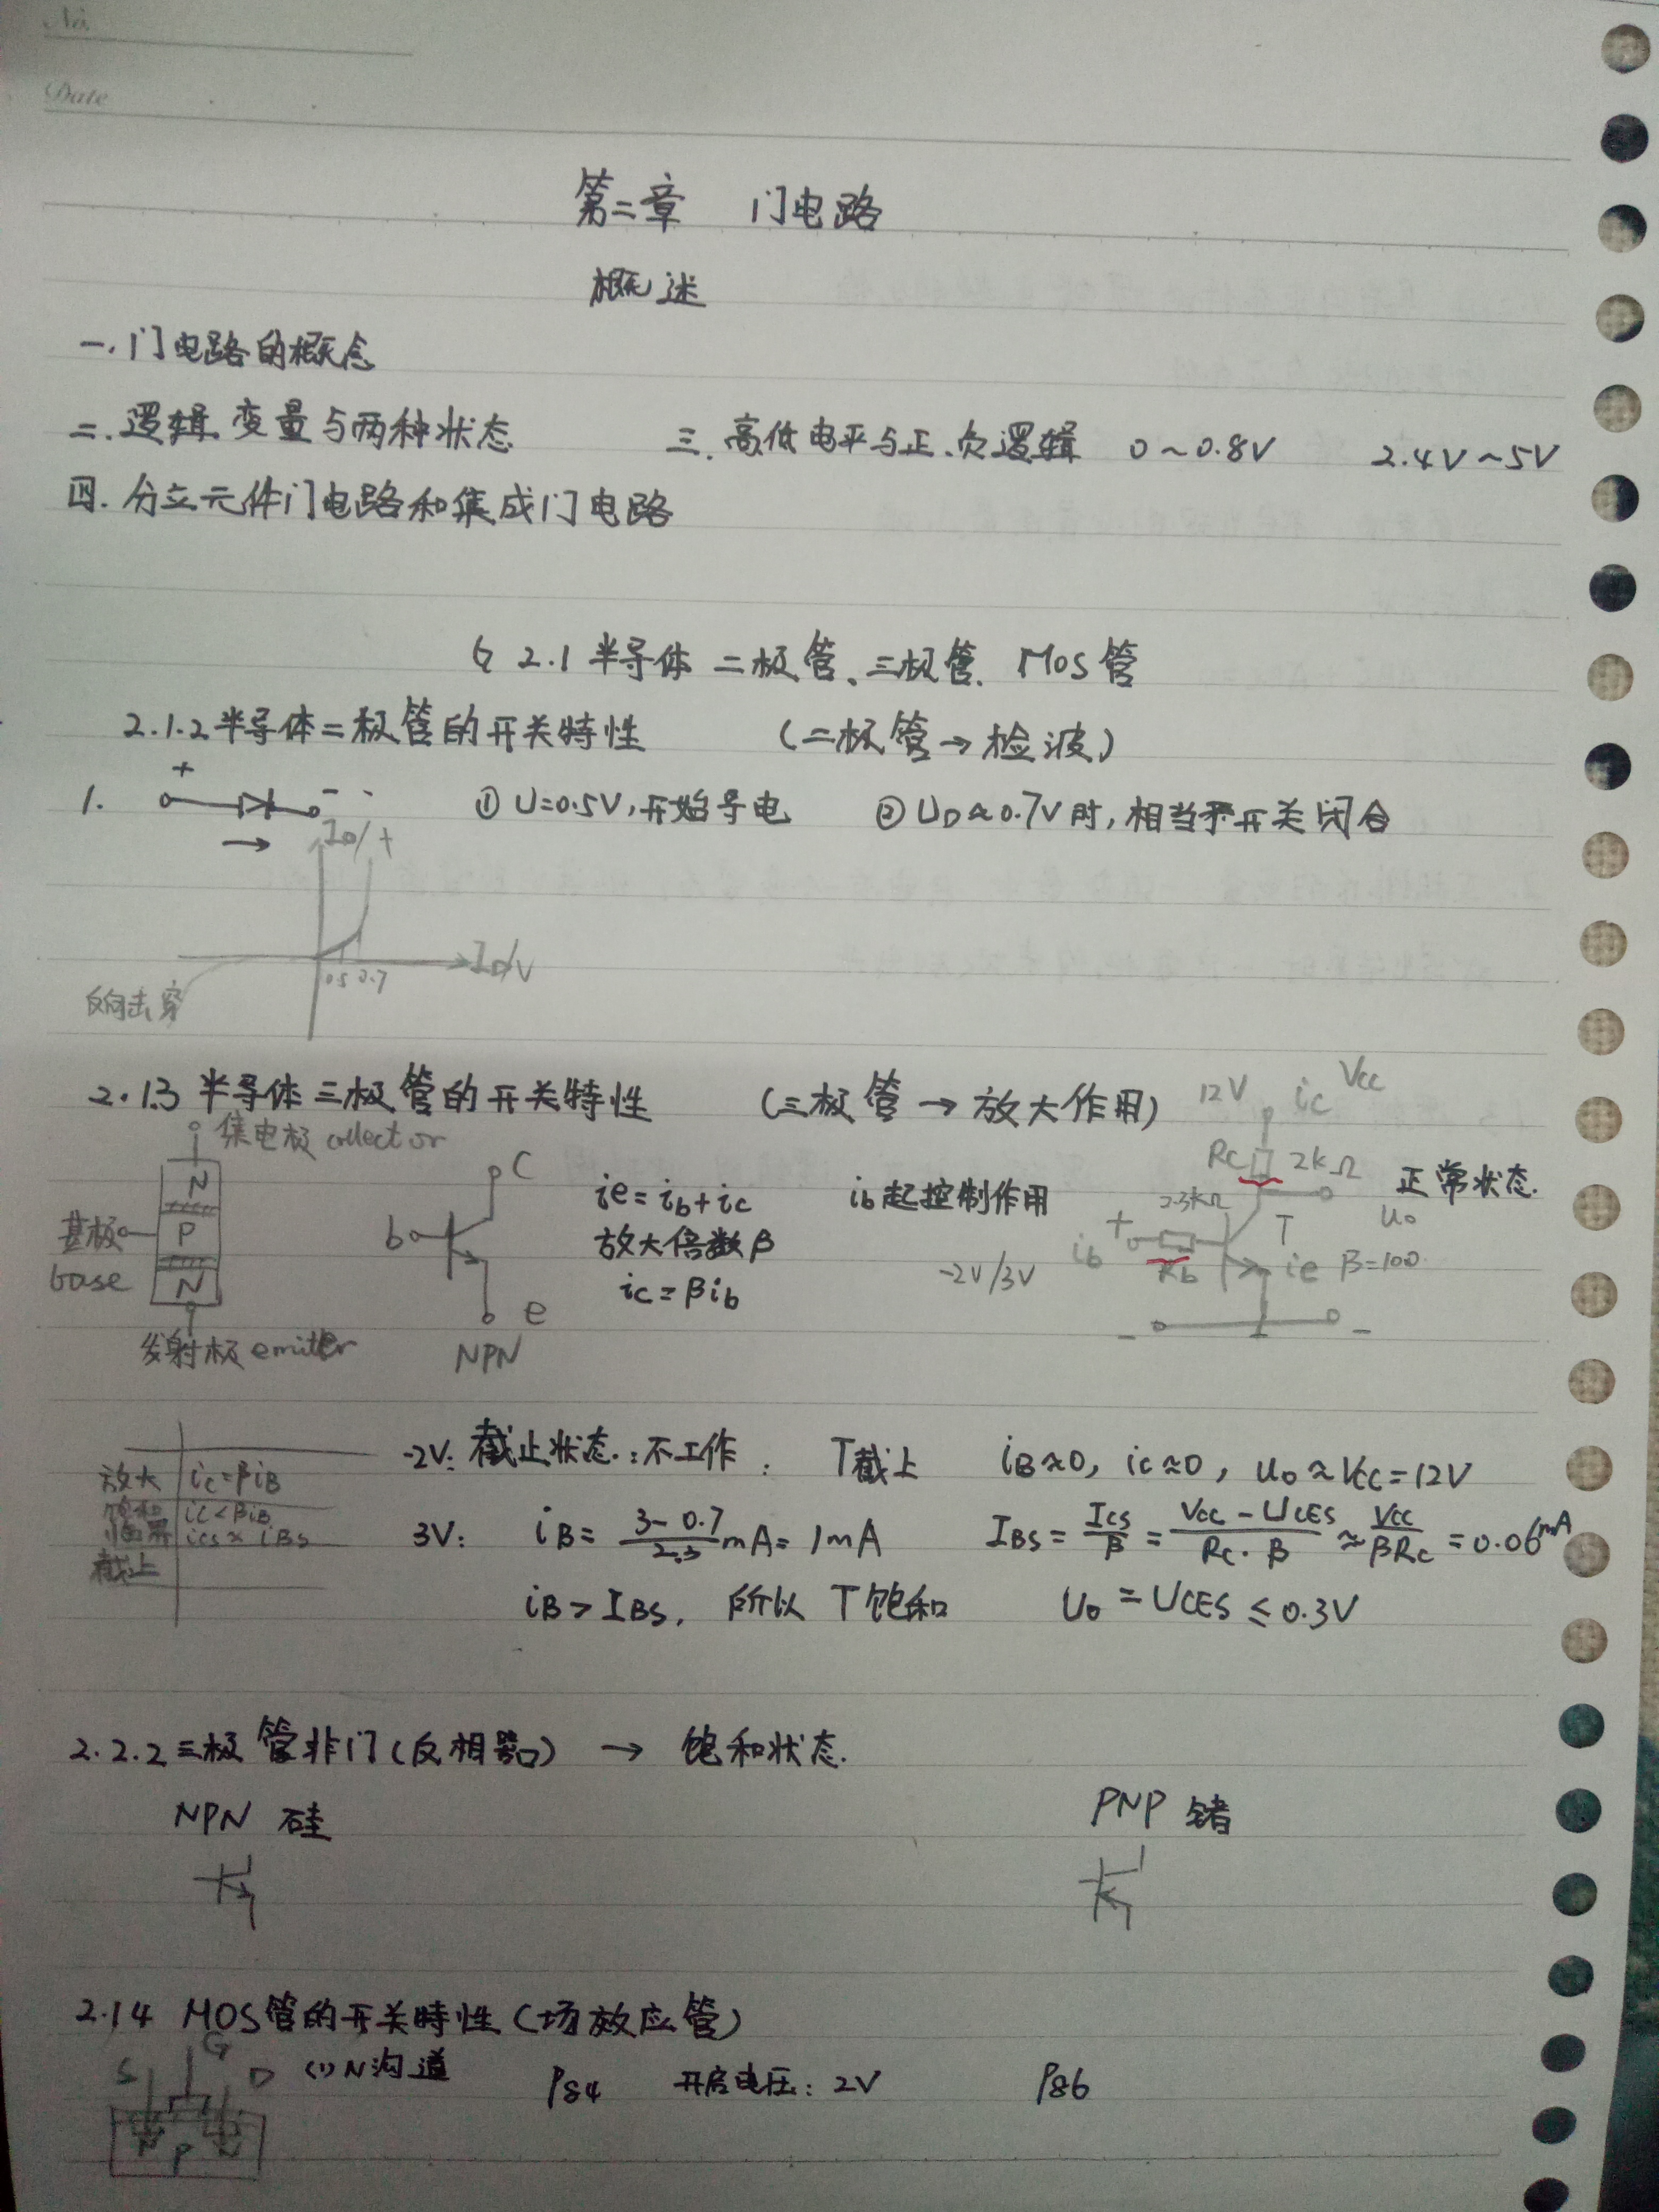 No.
Date
第二章 门电路
概述
一.门电路的概念
二.逻辑变量与两种状态 三.高低电平与正、负逻辑 0~0.8V 2.4V~5V
四.分立元件门电路和集成门电路
§ 2.1 半导体二极管、三极管、MOS管
2.1.2 半导体二极管的开关特性 (二极管→检波)
1. + - ① U=0.5V,开始导电 ② UD≈0.7V时,相当于开关闭合
→
ID/+
ID/V
0.5 0.7
反向击穿
2.1.3 半导体三极管的开关特性 (三极管→放大作用)
集电极 collector
N
基极 P
base
N
发射极 emitter
C
b
e
NPN
ie=ib+ic ib起控制作用
放大倍数β
ic=βib
12V ic Vcc
Rc 2kΩ 正常状态.
2.3kΩ uo
+ T
ib Rb ie β=100
-2V/3V
- -
放大 ic=βiB
饱和 ic<βiB
临界 ics≈iBs
截止
-2V: 截止状态:不工作: T截止 iB≈0, ic≈0, uo≈Vcc=12V
3V: iB=\frac{3-0.7}{2.3}mA=1mA IBS=\frac{Ics}{β}=\frac{Vcc-UCES}{Rc·β}≈\frac{Vcc}{βRc}=0.06mA
iB>IBS, 所以T饱和 Uo=UCES≤0.3V
2.2.2 三极管非门(反相器) → 饱和状态.
NPN 硅 PNP 锗
2.1.4 MOS管的开关特性(场效应管)
S G D
(1)N沟道 P84 开启电压:2V P86
N P N